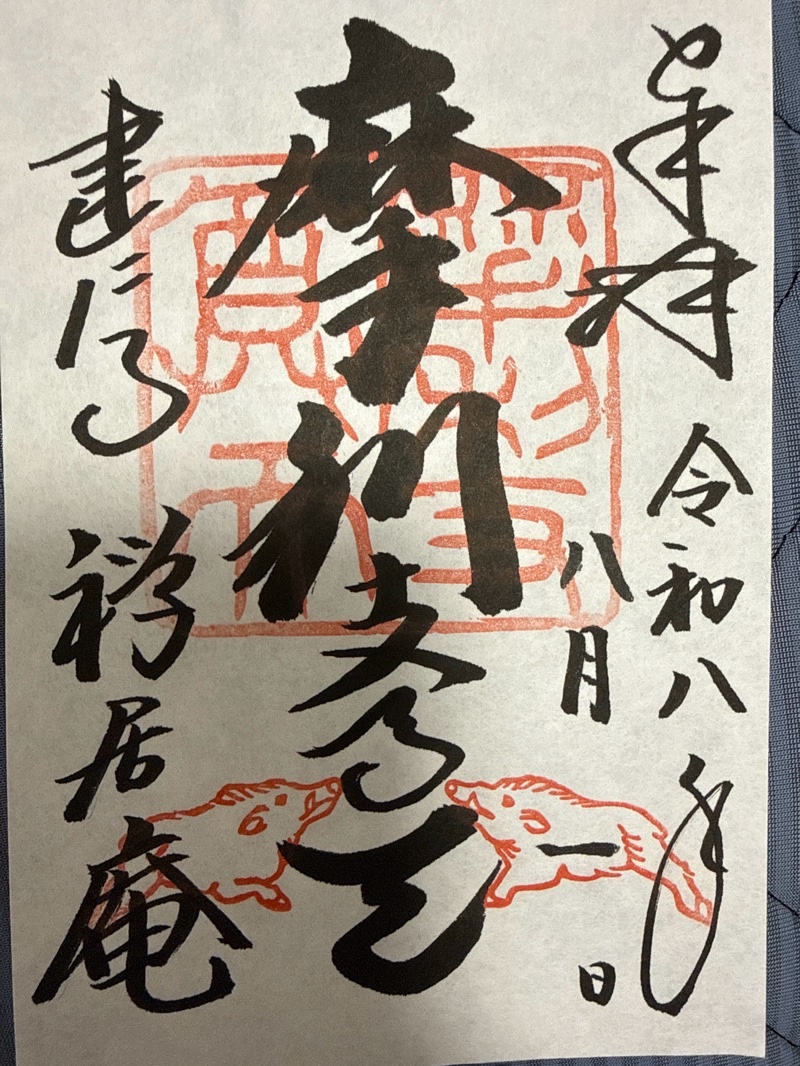 奉拝
令和八年
八月一日
摩利支尊天
建仁寺
禅居庵